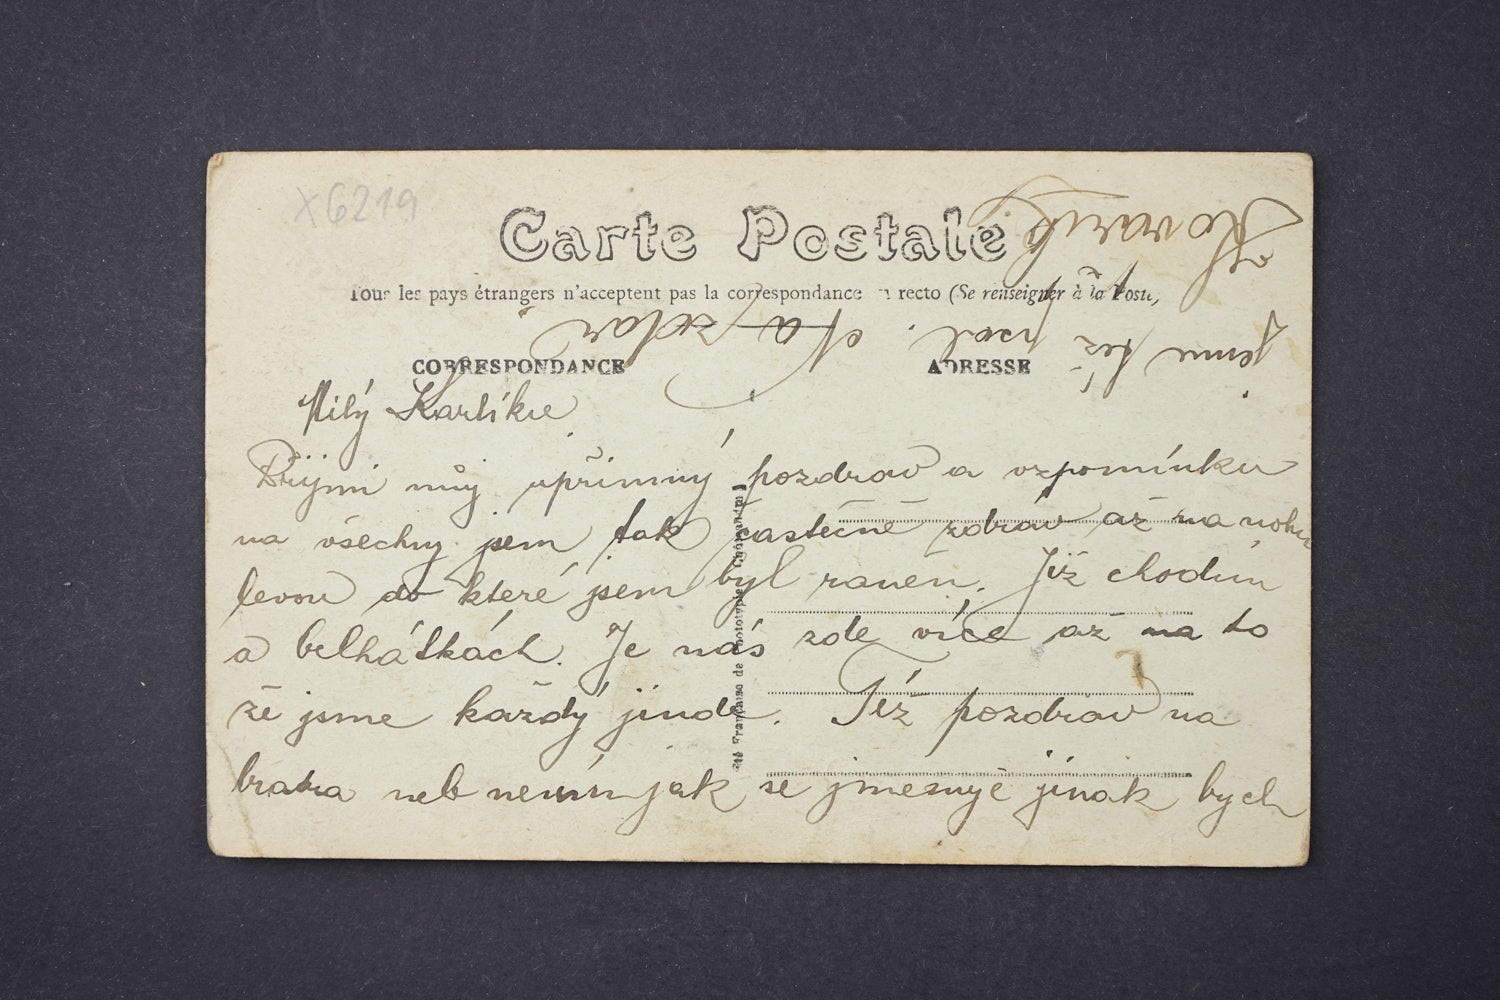 X6219
Carte Postale
Tous les pays étrangers n'acceptent pas la correspondance recto (Se renseigner à la Poste)
CORRESPONDANCE
ADRESSE
Milý Karlíku
Přijmi můj upřimný pozdrav a vzpomínku
na všechny jsem tak častečně zdrav až na nohu
levou do které jsem byl raněn. Již chodím
a belhátkách. Je nás zde více až na to
že jsme každý jinde. Též pozdrav na
bratra neb nevím jak se jmenuje jinak bych
jemu též psal. Na zdar
Kovařík
Sté Française de Phototypie